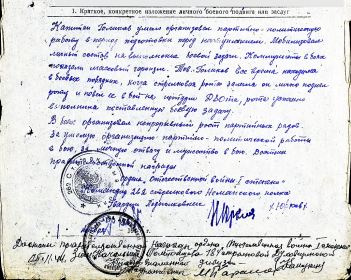 1. Краткое, конкретное изложение личного боевого подвига или заслуг
Капитан Голиков умело организовал партийно-политическую
работу в период подготовки перед наступлением. Мобилизовал
личный состав на выполнение боевой задачи. Коммунисты в боях
показали массовый героизм. Тов. Голиков все время находился
в боевых порядках. Когда стрелковая рота залегла он лично поднял
роту и повел ее в бой на штурм рота успешно
выполнила поставленную боевую задачу.
В бою организовал непрерывный рост партийных рядов.
За умелую организацию партийно-политической работы
в бою, за личную отвагу и мужество в бою. Достоин
правительственной награды
ордена "Отечественной войны I степени"
Командир 262 стрелкового Неманского полка
Гвардии Подполковник
Достоин правительственной награды ордена Отечественной войны
Командир 184 стрелковой Духовщинской
дивизии